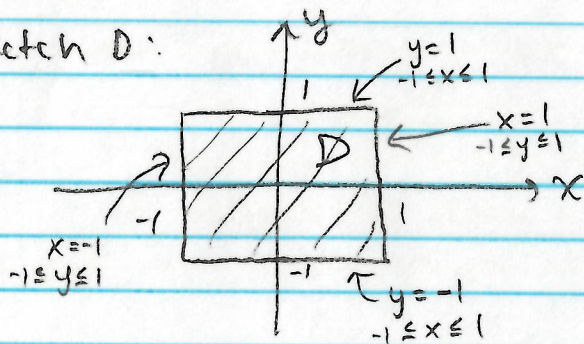 etch D:
y
y=1
-1≤x≤1
1
x=1
-1≤y≤1
D
x
-1
1
x=-1
-1≤y≤1
-1
y=-1
-1≤x≤1